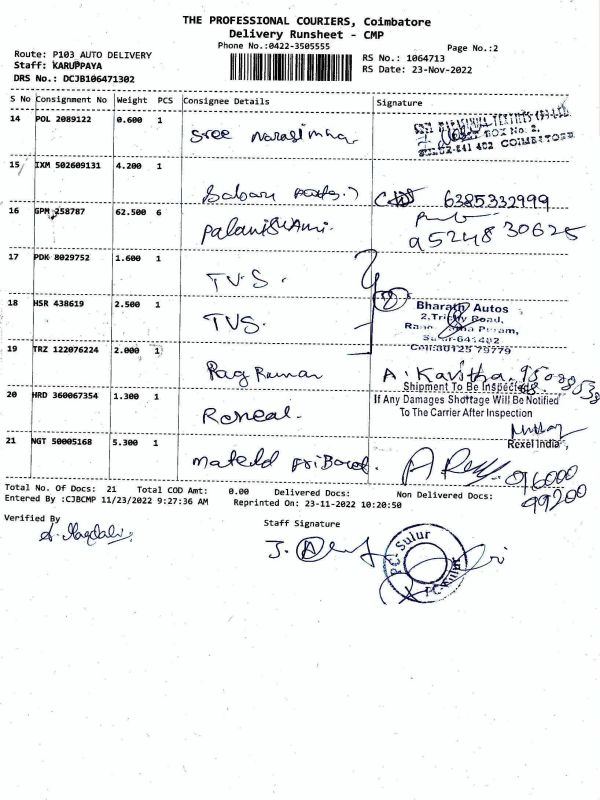 THE PROFESSIONAL COURIERS, Coimbatore
Delivery Runsheet - CMP
Phone No.:0422-3505555
Page No.:2
Route: P103 AUTO DELIVERY
Staff: KARUPPAYA
DRS No.: DCJB106471302
RS No.: 1064713
RS Date: 23-Nov-2022
S No Consignment No Weight PCS Consignee Details Signature
14 POL 2089122 0.600 1 Sree Narasimha
BOX No. 2,
SULUR-641 402 COIMBATORE
15 IXM 502609131 4.200 1 6385332999
16 GPM 258787 62.500 6 Palaniswami.
95248 30625
17 PDK 8029752 1.600 1 TVS.
18 HSR 438619 2.500 1 TVS.
8
Bharath Autos
2,Trichy Road,
Sulur-641402
19 TRZ 122076224 2.000 1 A. Kavitha
Shipment To Be Inspected
If Any Damages Shottage Will Be Notified
To The Carrier After Inspection
20 HRD 360067354 1.300 1
Rexel India
21 NGT 50005168 5.300 1
96000
99200
Total No. Of Docs: 21 Total COD Amt: 0.00 Delivered Docs: Non Delivered Docs:
Entered By :CJBCMP 11/23/2022 9:27:36 AM Reprinted On: 23-11-2022 10:20:50
Verified By
Staff Signature
PC Sulur
PC Sulur